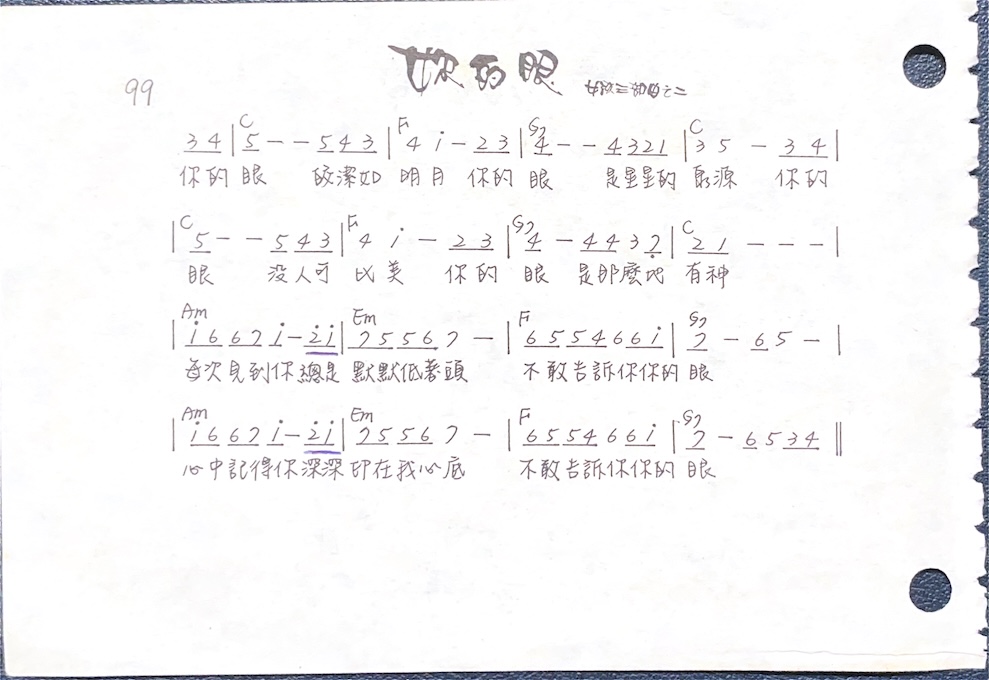 妳的眼
99
C F G7 C
34|5--543|4 i-23|4--4321|35-34|
你的眼 皎潔如 明月 你的 眼 是星星的 泉源 你的
C F G7 C
|5--543|4 i-23|4-4437|21---|
眼 没人可 比美 你的 眼 是那麼地 有神
Am Em F G7
|i667i-2i|75567-|655466i|7-65-|
每次見到你總是 默默低著頭 不敢告訴你你的 眼
Am Em F G7
|i667i-2i|75567-|655466i|7-6534||
心中記得你深深 印在我心底 不敢告訴你你的 眼